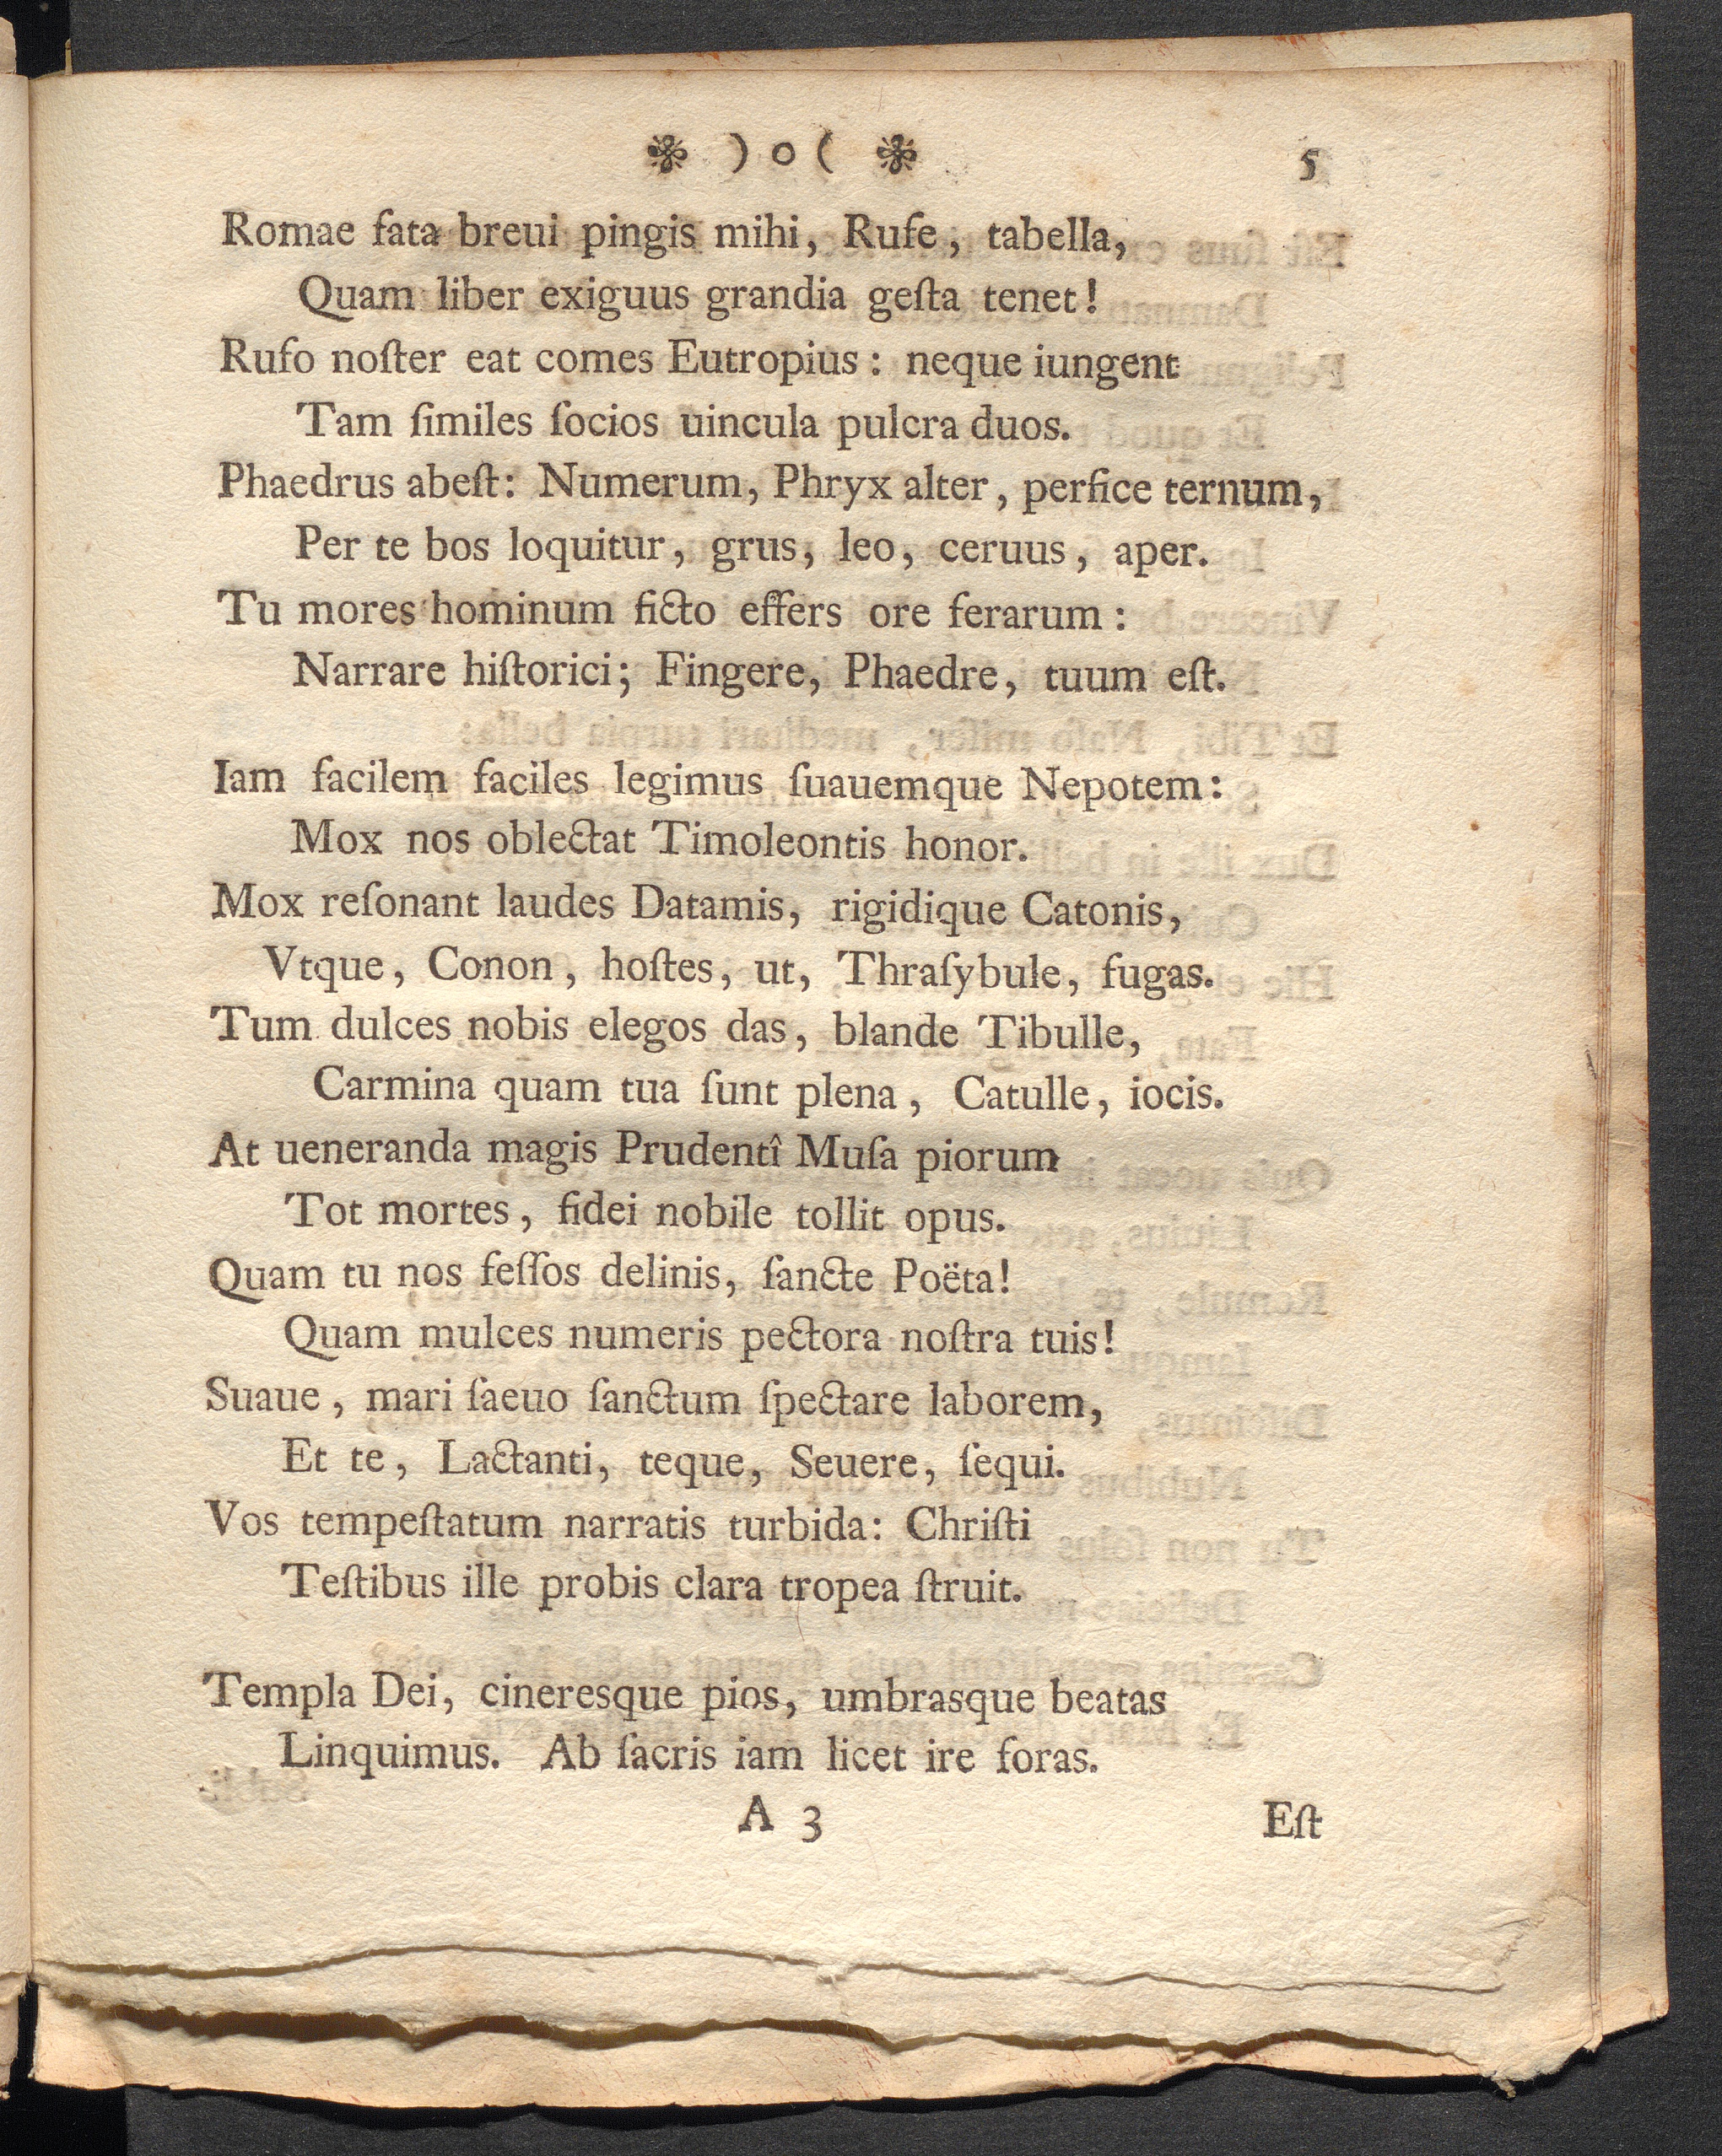 ❉ ) o ( ❉ 5
Romae fata breui pingis mihi, Rufe, tabella,
Quam liber exiguus grandia geſta tenet!
Rufo noſter eat comes Eutropius: neque iungent
Tam ſimiles ſocios uincula pulcra duos.
Phaedrus abeſt: Numerum, Phryx alter, perfice ternum,
Per te bos loquitur, grus, leo, ceruus, aper.
Tu mores hominum ficto effers ore ferarum:
Narrare hiſtorici; Fingere, Phaedre, tuum eſt.
Iam facilem faciles legimus ſuauemque Nepotem:
Mox nos oblectat Timoleontis honor.
Mox reſonant laudes Datamis, rigidique Catonis,
Vtque, Conon, hoſtes, ut, Thraſybule, fugas.
Tum dulces nobis elegos das, blande Tibulle,
Carmina quam tua ſunt plena, Catulle, iocis.
At ueneranda magis Prudentî Muſa piorum
Tot mortes, fidei nobile tollit opus.
Quam tu nos feſſos delinis, ſancte Poëta!
Quam mulces numeris pectora noſtra tuis!
Suaue, mari ſaeuo ſanctum ſpectare laborem,
Et te, Lactanti, teque, Seuere, ſequi.
Vos tempeſtatum narratis turbida: Chriſti
Teſtibus ille probis clara tropea ſtruit.
Templa Dei, cineresque pios, umbrasque beatas
Linquimus. Ab ſacris iam licet ire foras.
A 3 Eſt